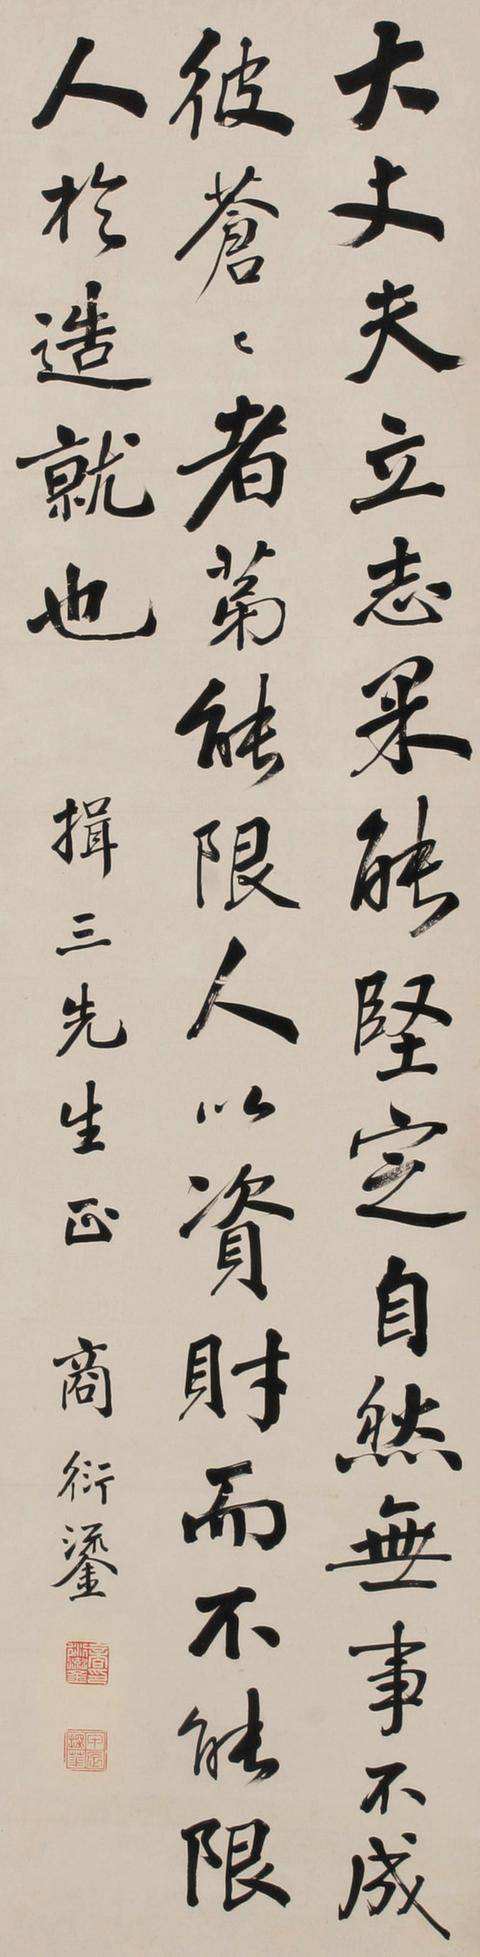 大丈夫立志果能堅定自然無事不成
彼蒼〻者苐能限人以資財而不能限
人於造就也
揖三先生正 商衍鎏